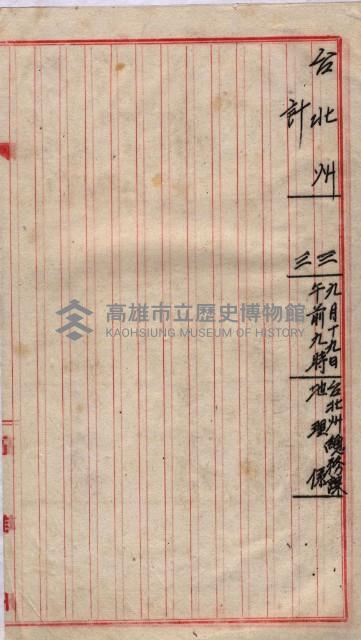 台北州
三
九月十九日
午前九時
台北州總務課
地理係
計
三
高雄市立歷史博物館
KAOHSIUNG MUSEUM OF HISTORY